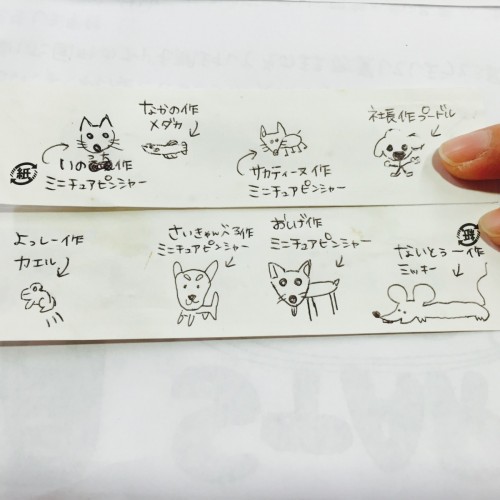 なかの作
メダカ
いの作
ミニチュアピンシャー
紙
サカティーヌ作
ミニチュアピンシャー
社長作プードル
よっしー作
カエル
さいきゃん作
ミニチュアピンシャー
おしげ作
ミニチュアピンシャー
ないとぅー作
ミッキー
紙